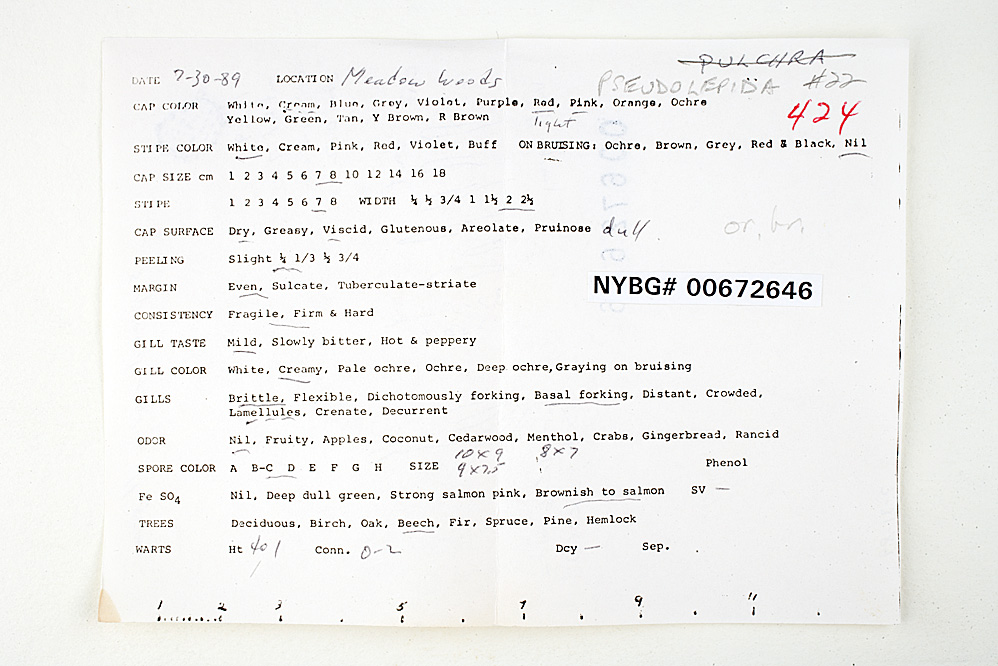 PULCHRA
DATE 7-30-89 LOCATION Meadow Woods PSEUDOLEPIDA #22
CAP COLOR White, Cream, Blue, Grey, Violet, Purple, Red, Pink, Orange, Ochre 424
Yellow, Green, Tan, Y Brown, R Brown light
STIPE COLOR White, Cream, Pink, Red, Violet, Buff ON BRUISING: Ochre, Brown, Grey, Red & Black, Nil
CAP SIZE cm 1 2 3 4 5 6 7 8 10 12 14 16 18
STIPE 1 2 3 4 5 6 7 8 WIDTH ¼ ½ 3/4 1 1½ 2 2½
CAP SURFACE Dry, Greasy, Viscid, Glutenous, Areolate, Pruinose dull or, br,
PEELING Slight ¼ 1/3 ½ 3/4
MARGIN Even, Sulcate, Tuberculate-striate
NYBG# 00672646
CONSISTENCY Fragile, Firm & Hard
GILL TASTE Mild, Slowly bitter, Hot & peppery
GILL COLOR White, Creamy, Pale ochre, Ochre, Deep ochre, Graying on bruising
GILLS Brittle, Flexible, Dichotomously forking, Basal forking, Distant, Crowded,
Lamellules, Crenate, Decurrent
ODOR Nil, Fruity, Apples, Coconut, Cedarwood, Menthol, Crabs, Gingerbread, Rancid
10x9 8x7
SPORE COLOR A B-C D E F G H SIZE 9x7.5 Phenol
Fe SO4 Nil, Deep dull green, Strong salmon pink, Brownish to salmon SV —
TREES Deciduous, Birch, Oak, Beech, Fir, Spruce, Pine, Hemlock
WARTS Ht Conn. 0-2 Dcy — Sep.
1 2 3 5 7 9 11